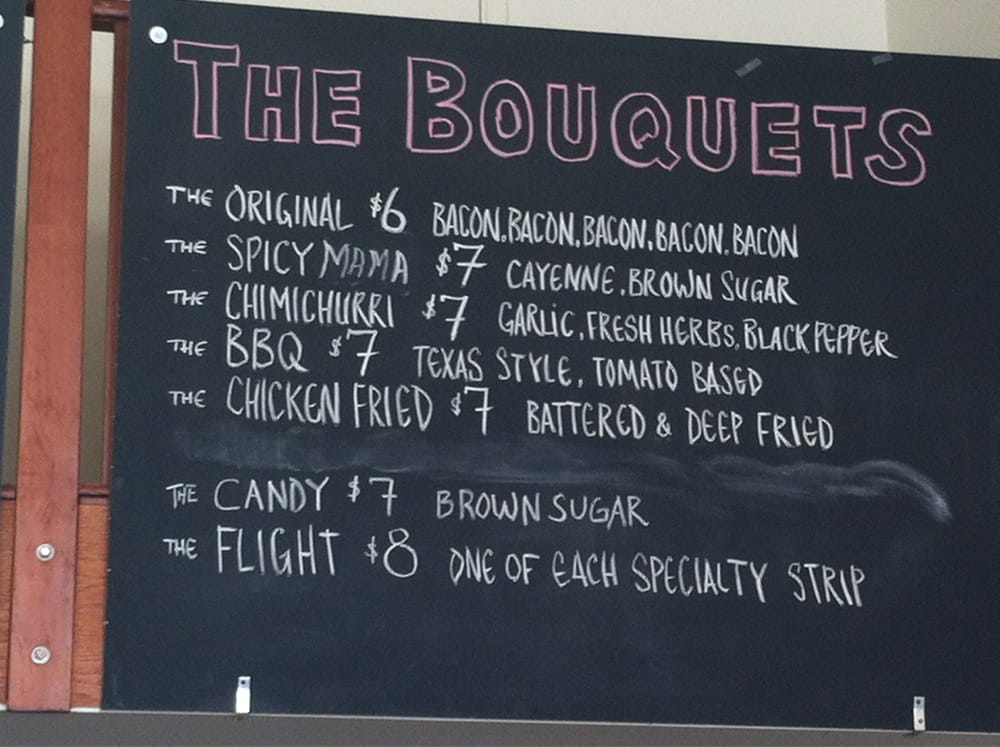 THE BOUQUETS
THE ORIGINAL $6 BACON, BACON, BACON, BACON, BACON
THE SPICY MAMA $7 CAYENNE, BROWN SUGAR
THE CHIMICHURRI $7 GARLIC, FRESH HERBS, BLACK PEPPER
THE BBQ $7 TEXAS STYLE, TOMATO BASED
THE CHICKEN FRIED $7 BATTERED & DEEP FRIED
THE CANDY $7 BROWN SUGAR
THE FLIGHT $8 ONE OF EACH SPECIALTY STRIP